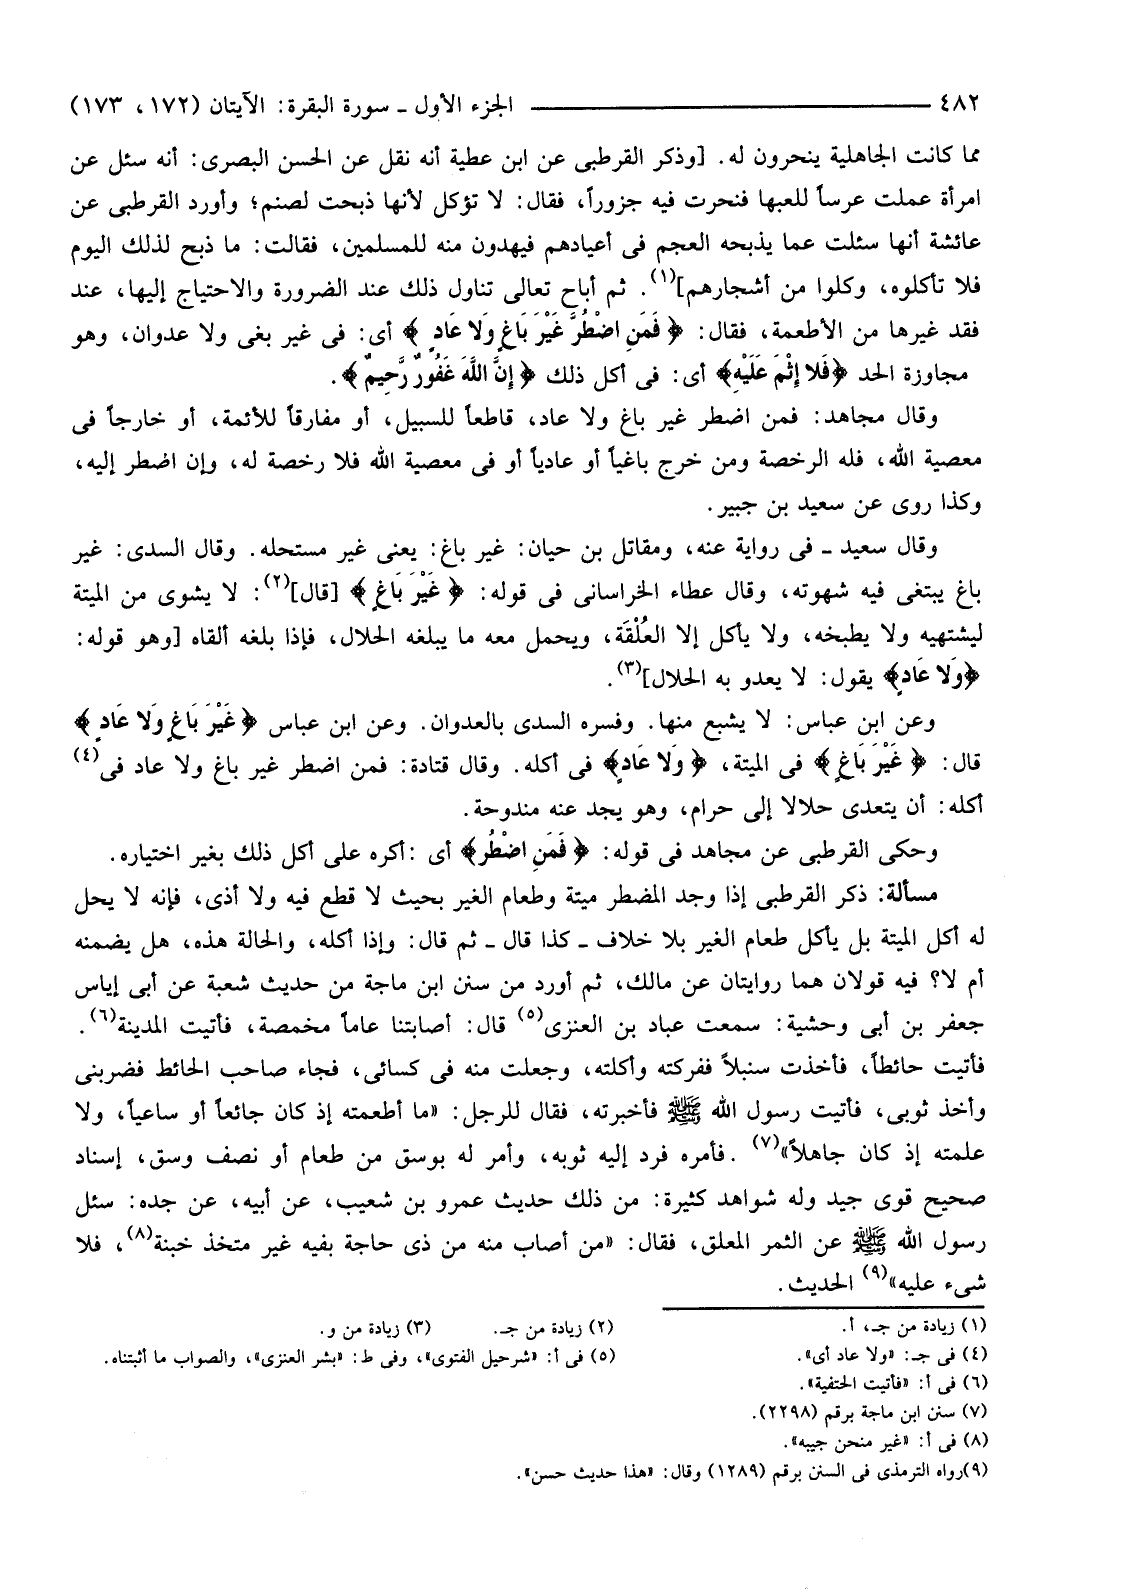 ٤٨٢ ـــــــ الجزء الأول ـ سورة البقرة: الآيتان (١٧٢، ١٧٣)
مما كانت الجاهلية ينحرون له. [وذكر القرطبى عن ابن عطية أنه نقل عن الحسن البصرى: أنه سئل عن
امرأة عملت عرساً للعبها فنحرت فيه جزوراً، فقال: لا تؤكل لأنها ذبحت لصنم؛ وأورد القرطبى عن
عائشة أنها سئلت عما يذبحه العجم فى أعيادهم فيهدون منه للمسلمين، فقالت: ما ذبح لذلك اليوم
فلا تأكلوه، وكلوا من أشجارهم](١). ثم أباح تعالى تناول ذلك عند الضرورة والاحتياج إليها، عند
فقد غيرها من الأطعمة، فقال: ﴿فَمَنِ اضْطُرَّ غَيْرَ بَاغٍ وَلا عَادٍ﴾ أى: فى غير بغى ولا عدوان، وهو
مجاوزة الحد ﴿فَلا إِثْمَ عَلَيْهِ﴾ أى: فى أكل ذلك ﴿إِنَّ اللَّهَ غَفُورٌ رَّحِيمٌ﴾.
وقال مجاهد: فمن اضطر غير باغ ولا عاد، قاطعاً للسبيل، أو مفارقاً للأئمة، أو خارجاً فى
معصية الله، فله الرخصة ومن خرج باغياً أو عادياً أو فى معصية الله فلا رخصة له، وإن اضطر إليه،
وكذا روى عن سعيد بن جبير.
وقال سعيد ـ فى رواية عنه، ومقاتل بن حيان: غير باغ: يعنى غير مستحله. وقال السدى: غير
باغ يبتغى فيه شهوته، وقال عطاء الخراسانى فى قوله: ﴿غَيْرَ بَاغٍ﴾ [قال](٢): لا يشوى من الميتة
ليشتهيه ولا يطبخه، ولا يأكل إلا العُلْقَة، ويحمل معه ما يبلغه الحلال، فإذا بلغه ألقاه [وهو قوله:
﴿وَلا عَادٍ﴾ يقول: لا يعدو به الحلال](٣).
وعن ابن عباس: لا يشبع منها. وفسره السدى بالعدوان. وعن ابن عباس ﴿غَيْرَ بَاغٍ وَلا عَادٍ﴾
قال: ﴿غَيْرَ بَاغٍ﴾ فى الميتة، ﴿وَلا عَادٍ﴾ فى أكله. وقال قتادة: فمن اضطر غير باغ ولا عاد فى(٤)
أكله: أن يتعدى حلالا إلى حرام، وهو يجد عنه مندوحة.
وحكى القرطبى عن مجاهد فى قوله: ﴿فَمَنِ اضْطُر﴾ أى :أكره على أكل ذلك بغير اختياره.
مسألة: ذكر القرطبى إذا وجد المضطر ميتة وطعام الغير بحيث لا قطع فيه ولا أذى، فإنه لا يحل
له أكل الميتة بل يأكل طعام الغير بلا خلاف ـ كذا قال ـ ثم قال: وإذا أكله، والحالة هذه، هل يضمنه
أم لا؟ فيه قولان هما روايتان عن مالك، ثم أورد من سنن ابن ماجة من حديث شعبة عن أبى إياس
جعفر بن أبى وحشية: سمعت عباد بن العنزى(٥) قال: أصابتنا عاماً مخمصة، فأتيت المدينة(٦).
فأتيت حائطاً، فأخذت سنبلاً ففركته وأكلته، وجعلت منه فى كسائى، فجاء صاحب الحائط فضربنى
وأخذ ثوبى، فأتيت رسول الله ﷺ فأخبرته، فقال للرجل: «ما أطعمته إذ كان جائعاً أو ساعياً، ولا
علمته إذ كان جاهلاً»(٧) .فأمره فرد إليه ثوبه، وأمر له بوسق من طعام أو نصف وسق، إسناد
صحيح قوى جيد وله شواهد كثيرة: من ذلك حديث عمرو بن شعيب، عن أبيه، عن جده: سئل
رسول الله ﷺ عن الثمر المعلق، فقال: «من أصاب منه من ذى حاجة بفيه غير متخذ خبنة(٨)، فلا
شىء عليه»(٩) الحديث.
(١) زيادة من جـ، أ. (٢) زيادة من جـ. (٣) زيادة من و.
(٤) فى جـ: «ولا عاد أى». (٥) فى أ: «شرحيل الفتوى»، وفى ط: «بشر العنزى»، والصواب ما أثبتناه.
(٦) فى أ: «فأتيت الحتفية».
(٧) سنن ابن ماجة برقم (٢٢٩٨).
(٨) فى أ: «غير منحن جيبه».
(٩)رواه الترمذى فى السنن برقم (١٢٨٩) وقال: «هذا حديث حسن».